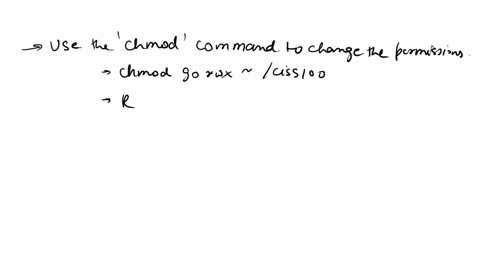 → Use the 'chmod' command to change the permissions.
→ chmod go rwx ~ /ciss100
→ R